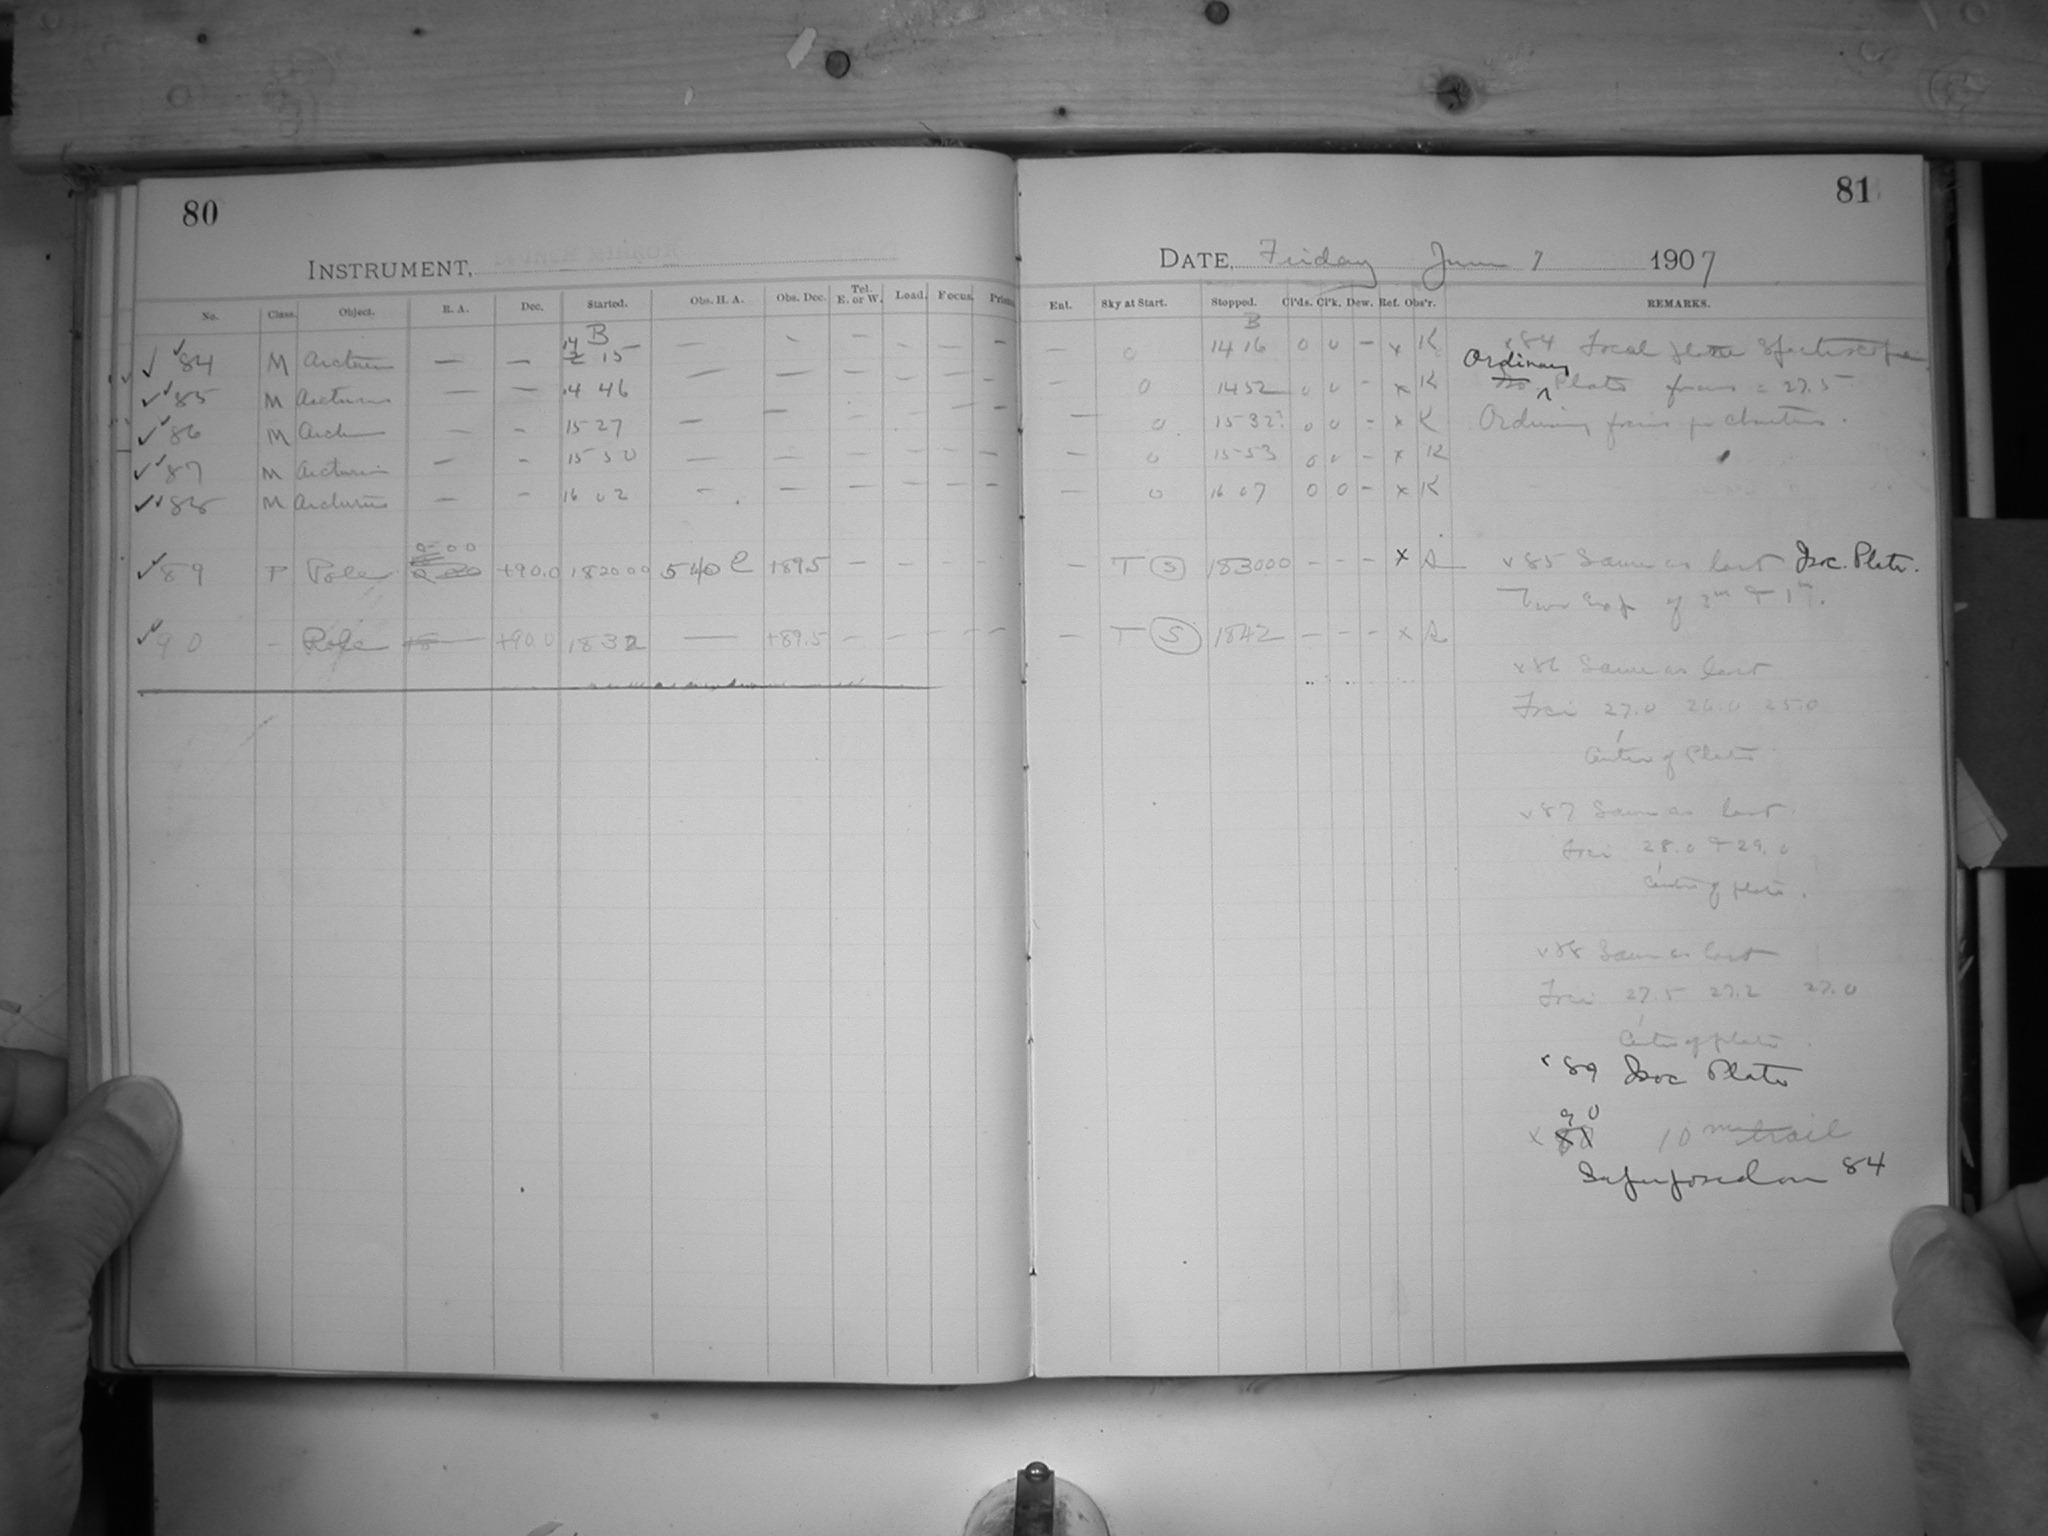 80
INSTRUMENT,
No. Class. Object. R. A. Dec. Started. Obs. H. A. Obs. Dec. Tel. E. or W. Load. Focus.
84 M Arcturus — — 14 B 15 — — —
85 M Arcturus — — 14 46 — — — — — —
86 M Arcturus — — 15 27 — — — — — —
87 M Arcturus — — 15 50 — — — — — —
88 M Arcturus — — 16 02 — — — — — —
89 P Pole +90.0 182000 540 e +89.5 — — — —
90 - Pole +90.0 1832 — +89.5 — — — —
81
DATE, Friday June 7 1907
Ent. Sky at Start. Stopped. Cl'ds. Cl'k. Dew. Ref. Obs'r. REMARKS.
— 0 B 14 16 0 0 - x K
— 0 14 52 0 0 - x K
— 0 15 32? 0 0 - x K
— 0 15 53 0 0 - x K
— 0 16 07 0 0 - x K
— T (S) 183000 - - - x
— T (S) 1842 - - - x
x84 Focal plane Spectroscope
Ordinary
Iso. ^ Plate focus = 27.5
x85 Same as last Isoc. Plate.
Two Exp of 3m + 1m.
x86 Same as last
Foci 27.0 26.0 25.0
Center of Plate
x87 Same as last.
Foci 28.0 + 29.0
Center of plate.
x88 Same as last
Foci 27.5 27.2 27.0
Center of plate.
x89 Isoc Plate
90
x 10 m trail
Superposed on 84